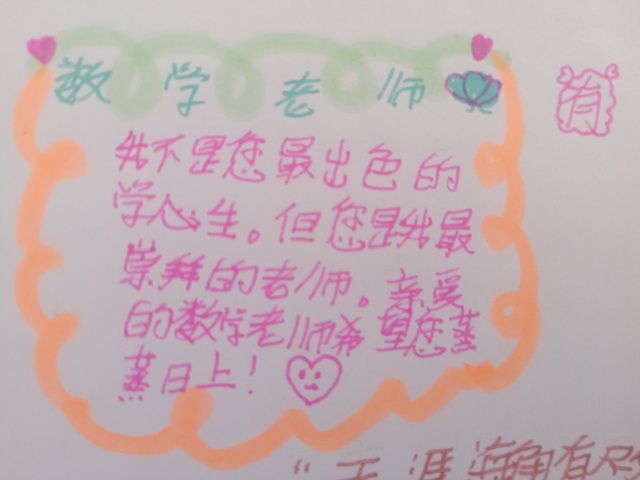 数学老师
有
我不是您最出色的
学心生。但您是我最
崇拜的老师。亲爱
的数学老师希望您蒸
蒸日上！
“天涯海角有尽